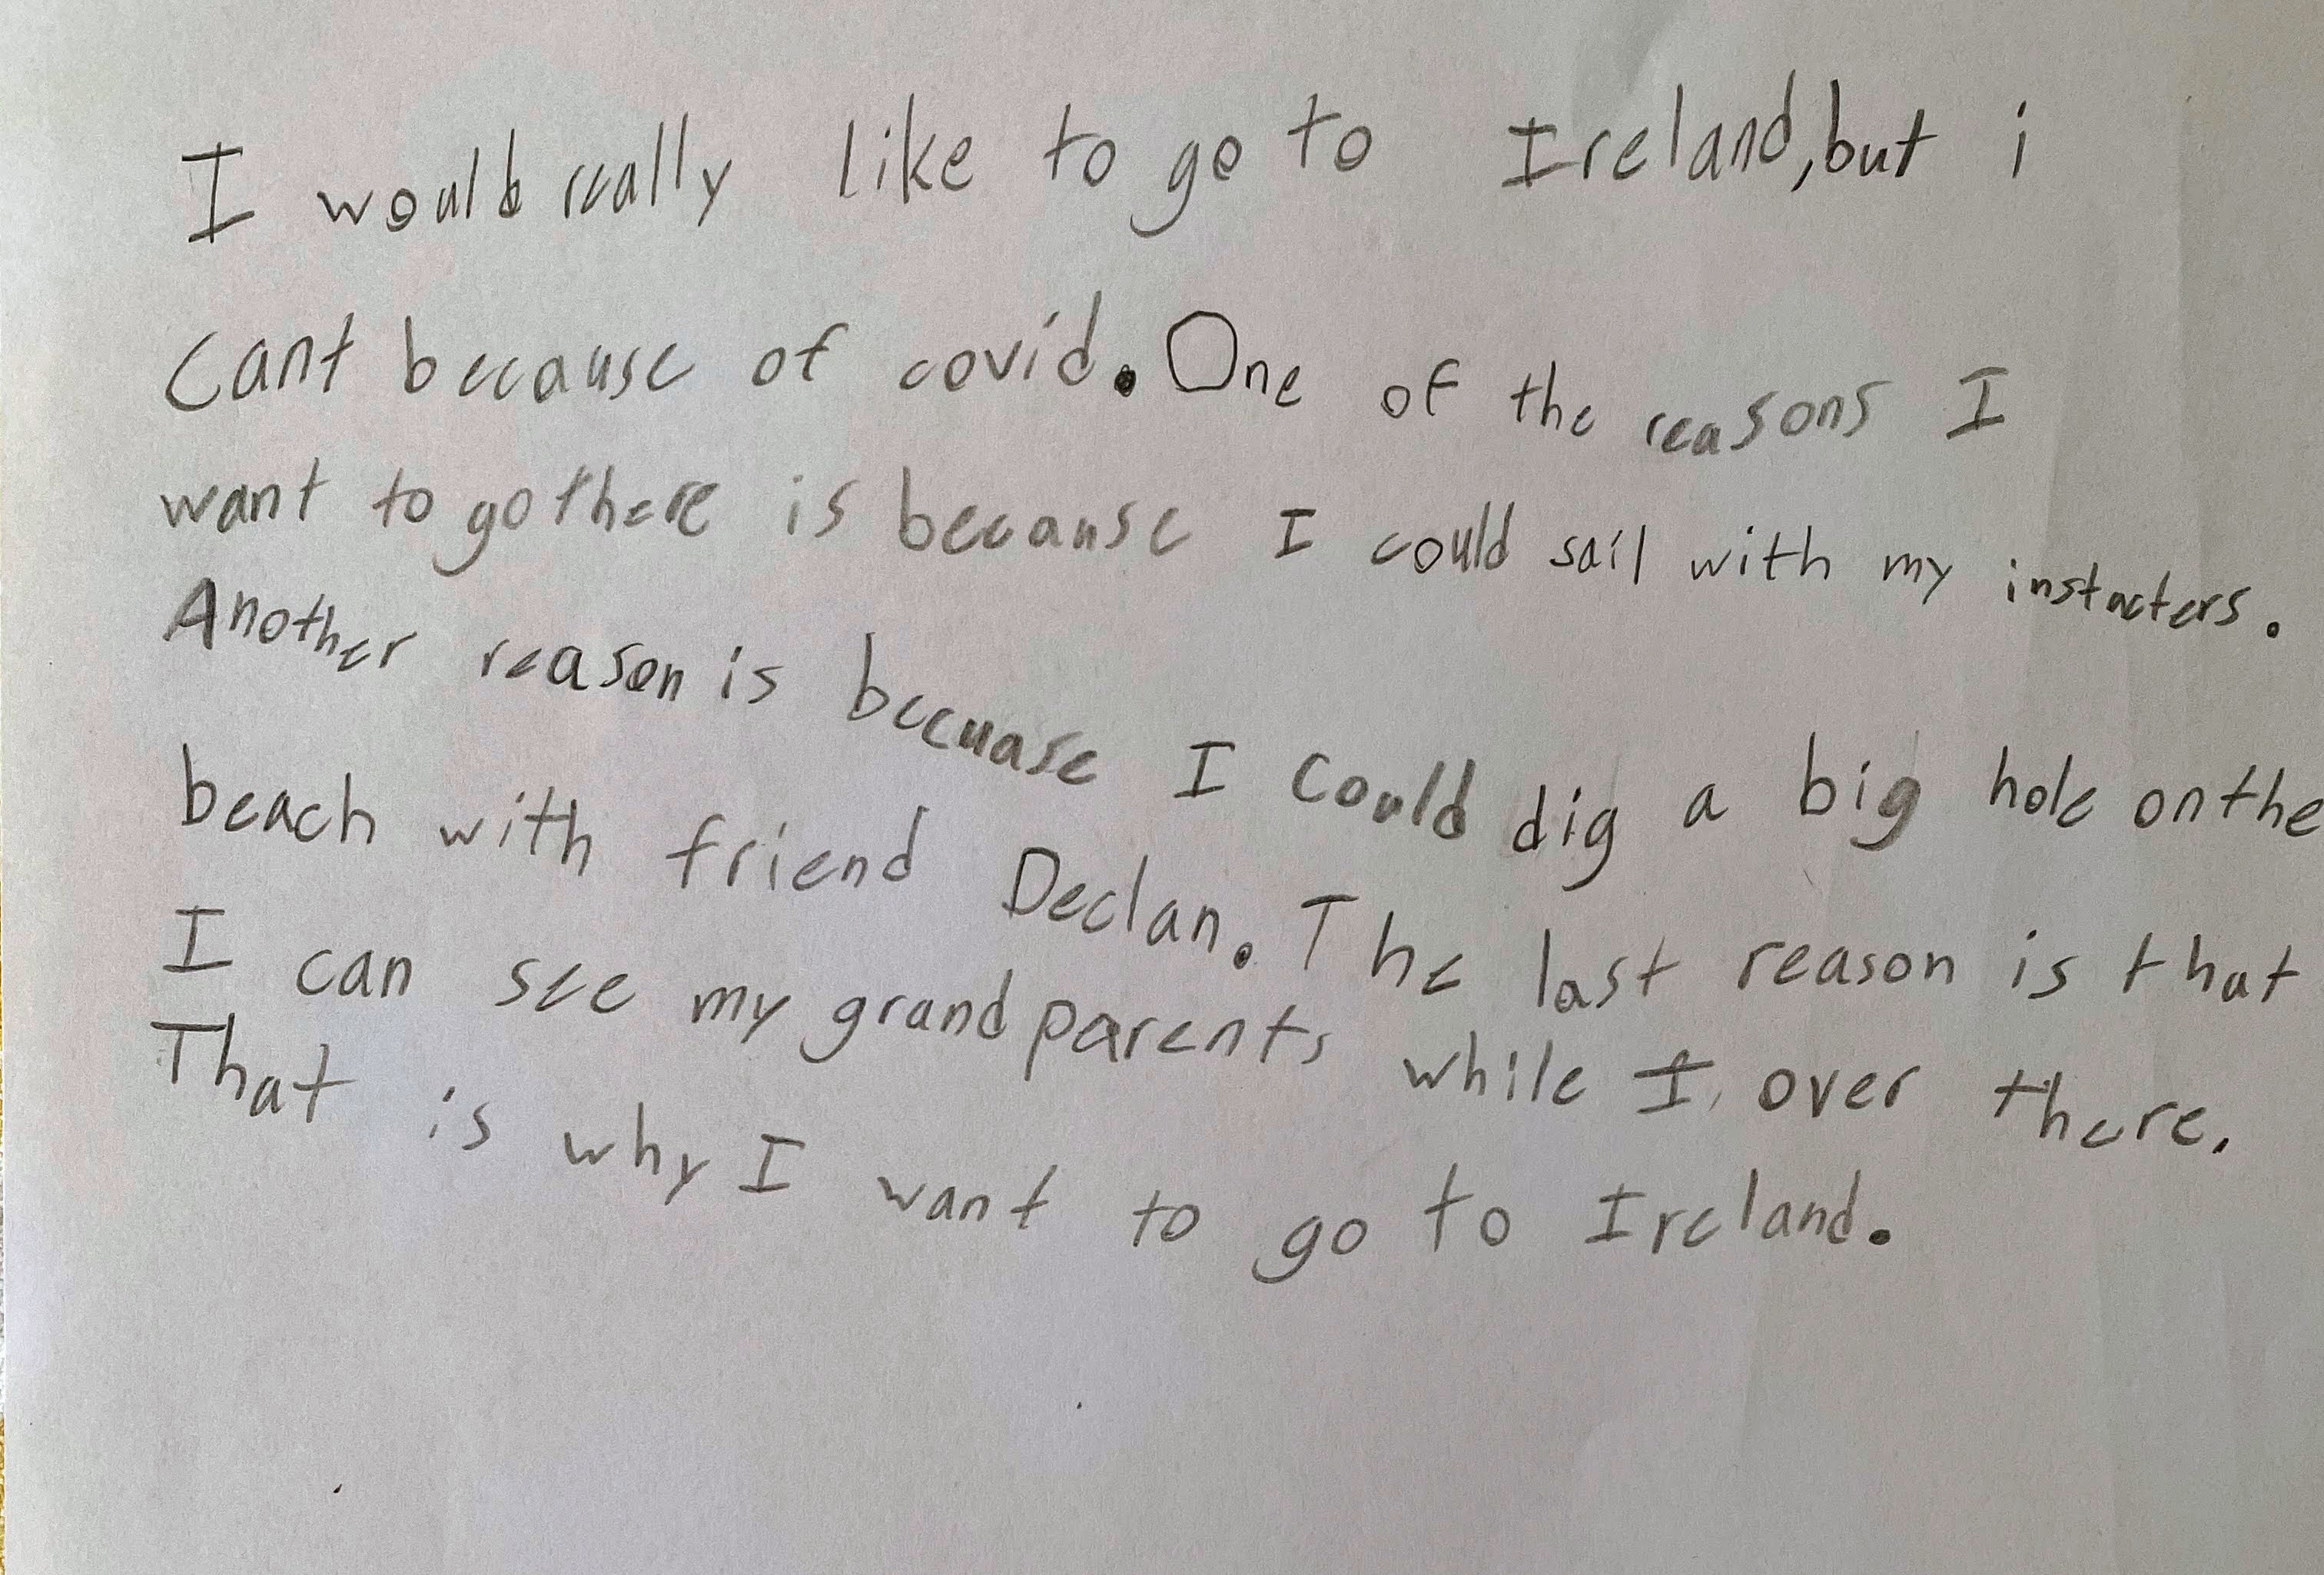 I would really like to go to Ireland, but i
cant because of covid. One of the reasons I
want to go there is because I could sail with my instucters.
Another reason is becuase I could dig a big hole on the
beach with friend Declan. The last reason is that
I can see my grandparents while I, over there.
That is why I want to go to Ireland.